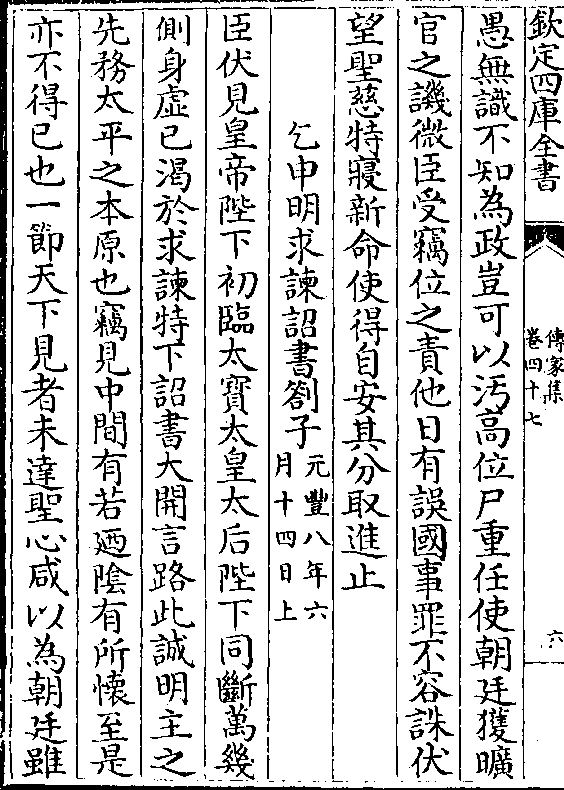 欽定四庫全書
傳家集
卷四十七
六
愚無識不知為政豈可以汚高位尸重任使朝廷獲曠
官之譏微臣受竊位之責他日有誤國事罪不容誅伏
望聖慈特寢新命使得自安其分取進止
乞申明求諫詔書劄子元豐八年六
月十四日上
臣伏見皇帝陛下初臨大寳太皇太后陛下同斷萬幾
側身虚已渴於求諫特下詔書大開言路此誠明主之
先務太平之本原也竊見中間有若廼隂有所懐至是
亦不得已也一節天下見者未達聖心咸以為朝廷雖